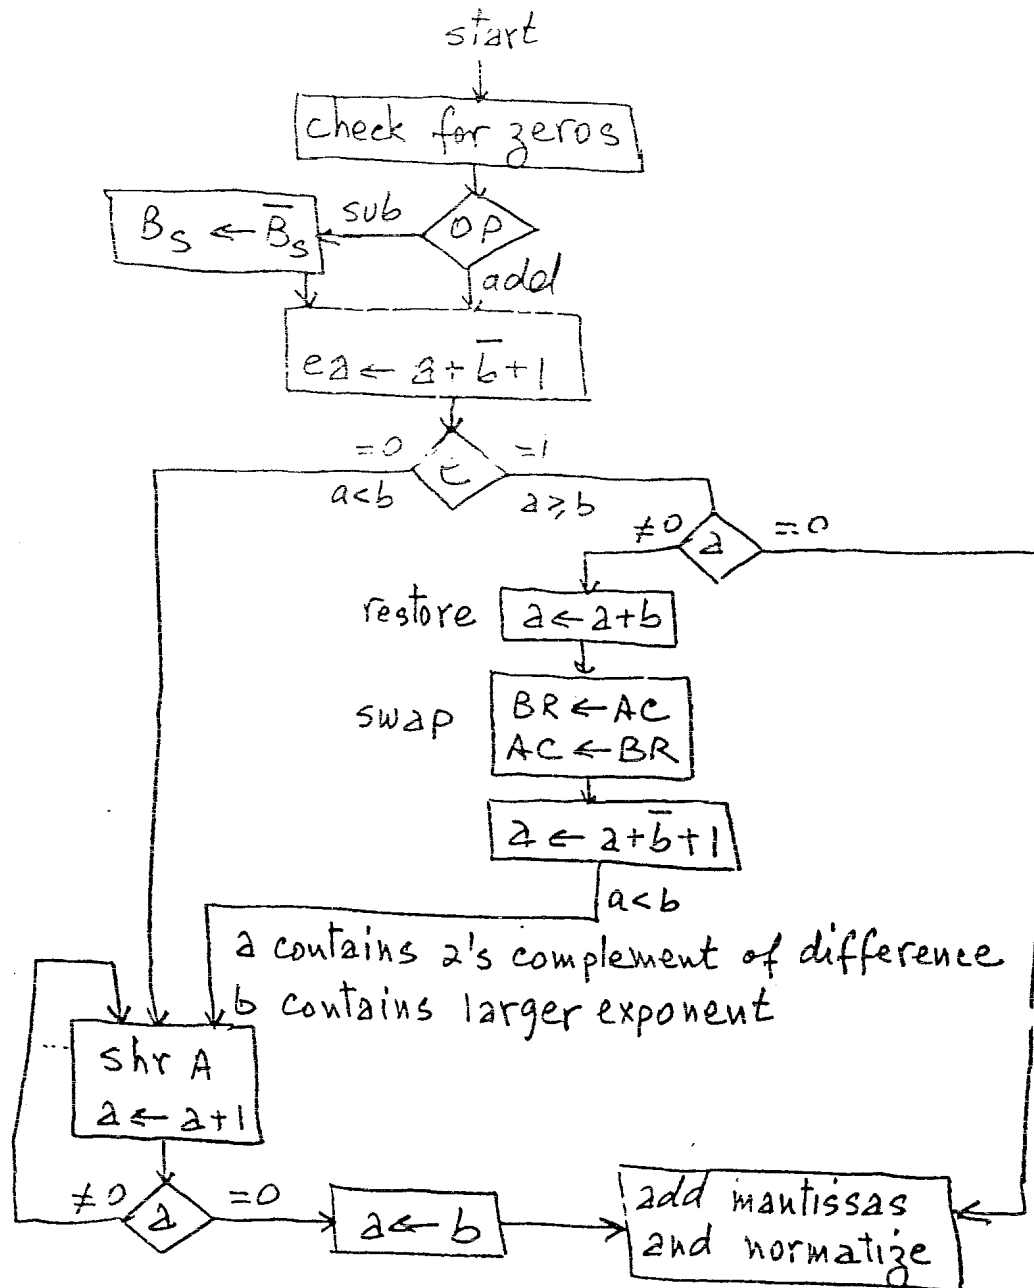 start
check for zeros
OP
sub
B_S ← B̅_S
add
ea ← a + b̅ + 1
=0
=1
e
a<b
a≥b
≠0
a
=0
restore
a ← a+b
swap
BR ← AC
AC ← BR
a ← a+b̅+1
a<b
a contains 2's complement of difference
b contains larger exponent
shr A
a ← a+1
≠0
a
=0
a ← b
add mantissas
and normatize